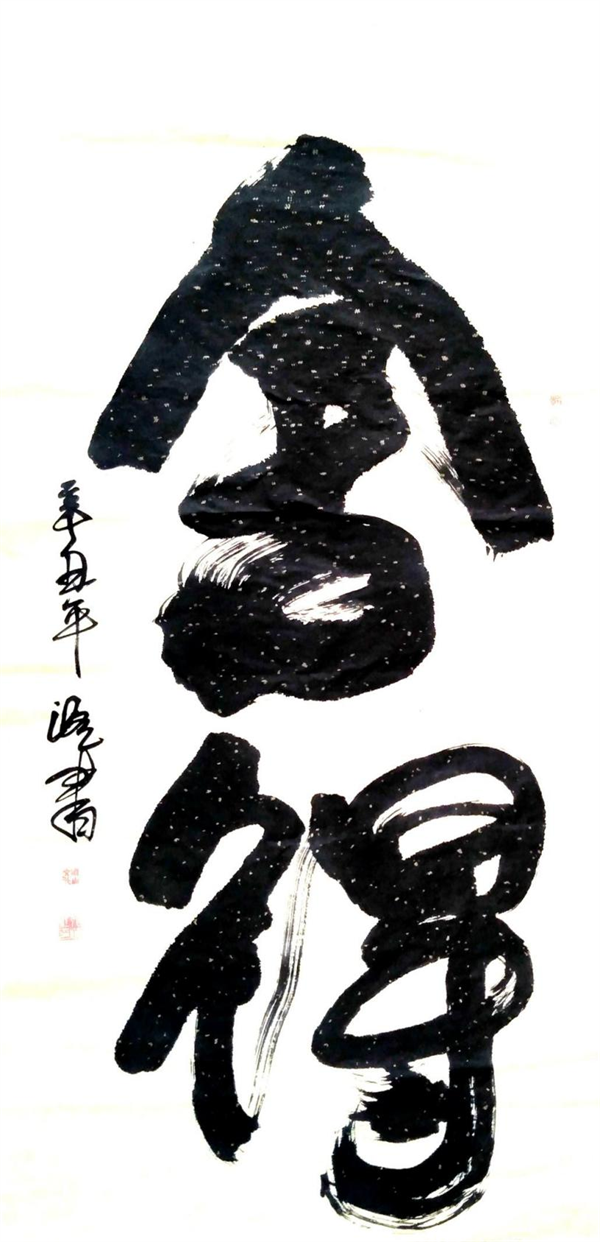 舍得
辛丑年
书